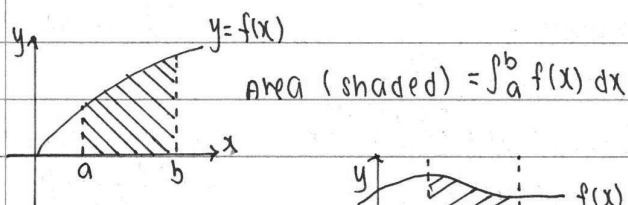 y
y=f(x)
Area (shaded) = ∫ₐᵇ f(x) dx
x
a
b
y
f(x)